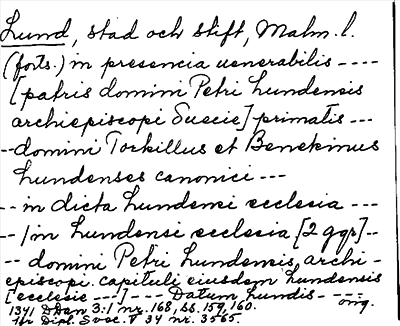 Lund, stad och stift, Malm. l.
(forts.) in presencia uenerabilis ----
[patris domini Petri lundensis
archiepiscopi Suecie] primatis ---
--domini Torkillus et Benekinus
lundenses canonici ---
-- in dicta lundensi ecclesia ---
-- / in lundensi ecclesia [2 ggr]--
-- domini Petri lundensis, archi-
episcopi capituli eiusdem lundensis
[ecclesie ---] --- Datum lundis - ---
1341 DDan 3:1 nr. 168, ss. 159, 160. orig.
Tr Dipl. Svec. V 34 nr. 3565.